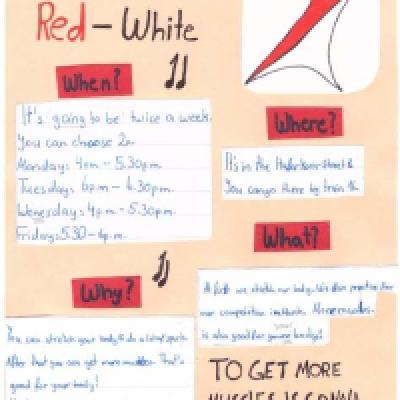 Red - White
When?
It's going to be twice a week.
You can choose 2.
Monday: 4pm - 5.30pm.
Tuesday: 6pm - 6.30pm.
Wenesday: 4pm - 5.30pm.
Friday: 5.30 - 6pm.
Where?
It's in the
You can go there by train 16.
What?
At first we stretch our body. We also practise for
our competition
is also good for your body!
Why?
You can stretch your body & do a
After that you can get more muscles. That's
good for your body!
TO GET MORE
MUSCLES IS GONNA